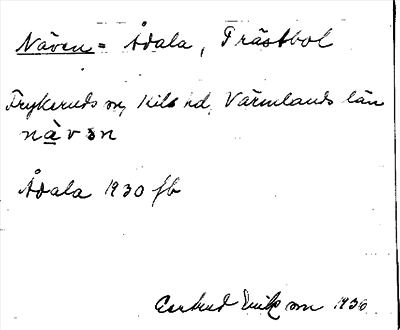 Näven = Ådala, Prästbol
Frykeruds sn, Kils hd, Värmlands län
nàvən
Ådala 1930 fb
Gertrud Eriksson 1930